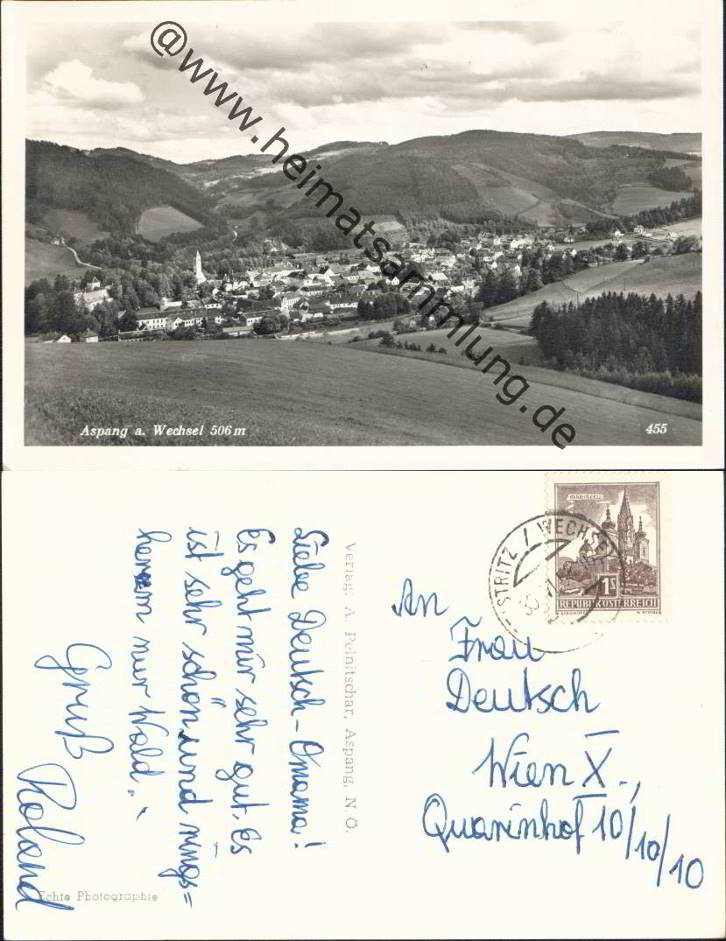 @www.heimatsammlung.de
Aspang a. Wechsel 506 m
455
Liebe Deutsch-Omama!
Es geht mir sehr gut. Es
ist sehr schön und rings=
herum nur Wald."
Gruß
Roland
Verlag: A. Pelnitschar, Aspang, N. Ö.
Echte Photographie
STRITZ / WECHSEL
1S
REPUBLIK ÖSTERREICH
An
Frau
Deutsch
Wien X.,
Quarinhof 10/10/10